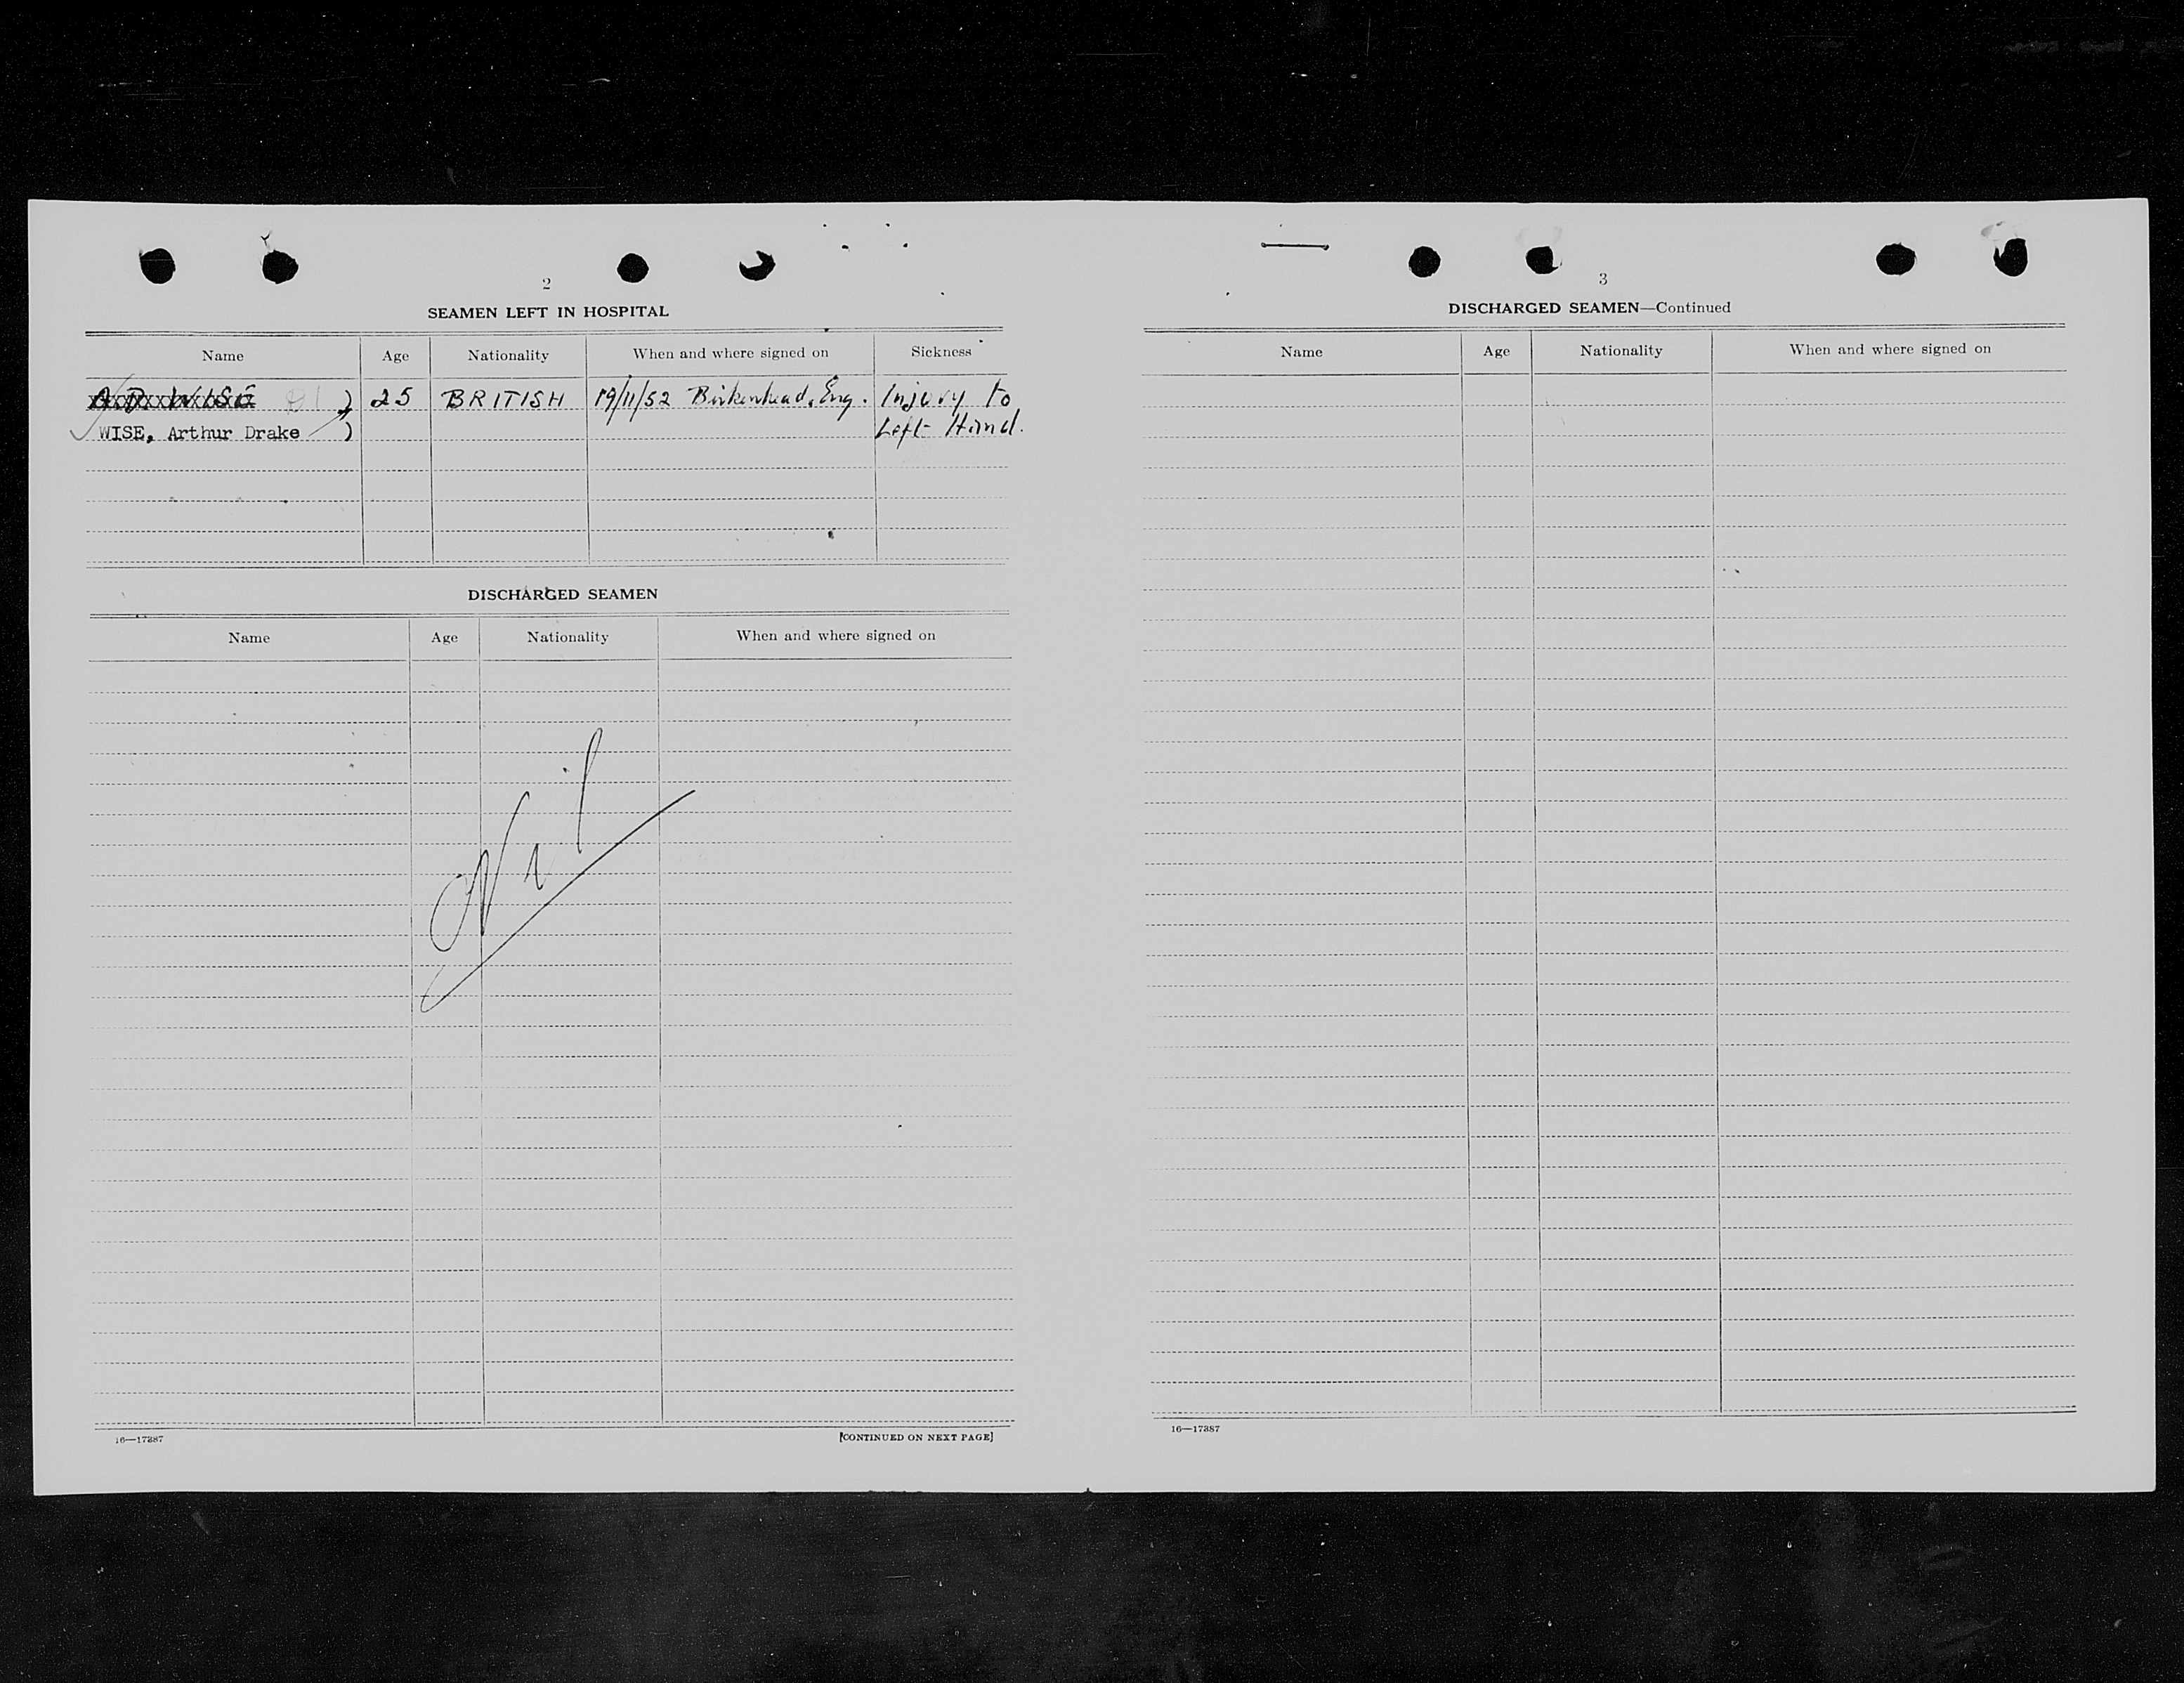 2
SEAMEN LEFT IN HOSPITAL
Name Age Nationality When and where signed on Sickness
A. D. WISE ) 25 BRITISH 19/11/52 Birkenhead, Eng. Injury to
WISE, Arthur Drake ) Left Hand.
DISCHARGED SEAMEN
Name Age Nationality When and where signed on
Nil
16—17387
[CONTINUED ON NEXT PAGE]
3
DISCHARGED SEAMEN—Continued
Name Age Nationality When and where signed on
16—17387